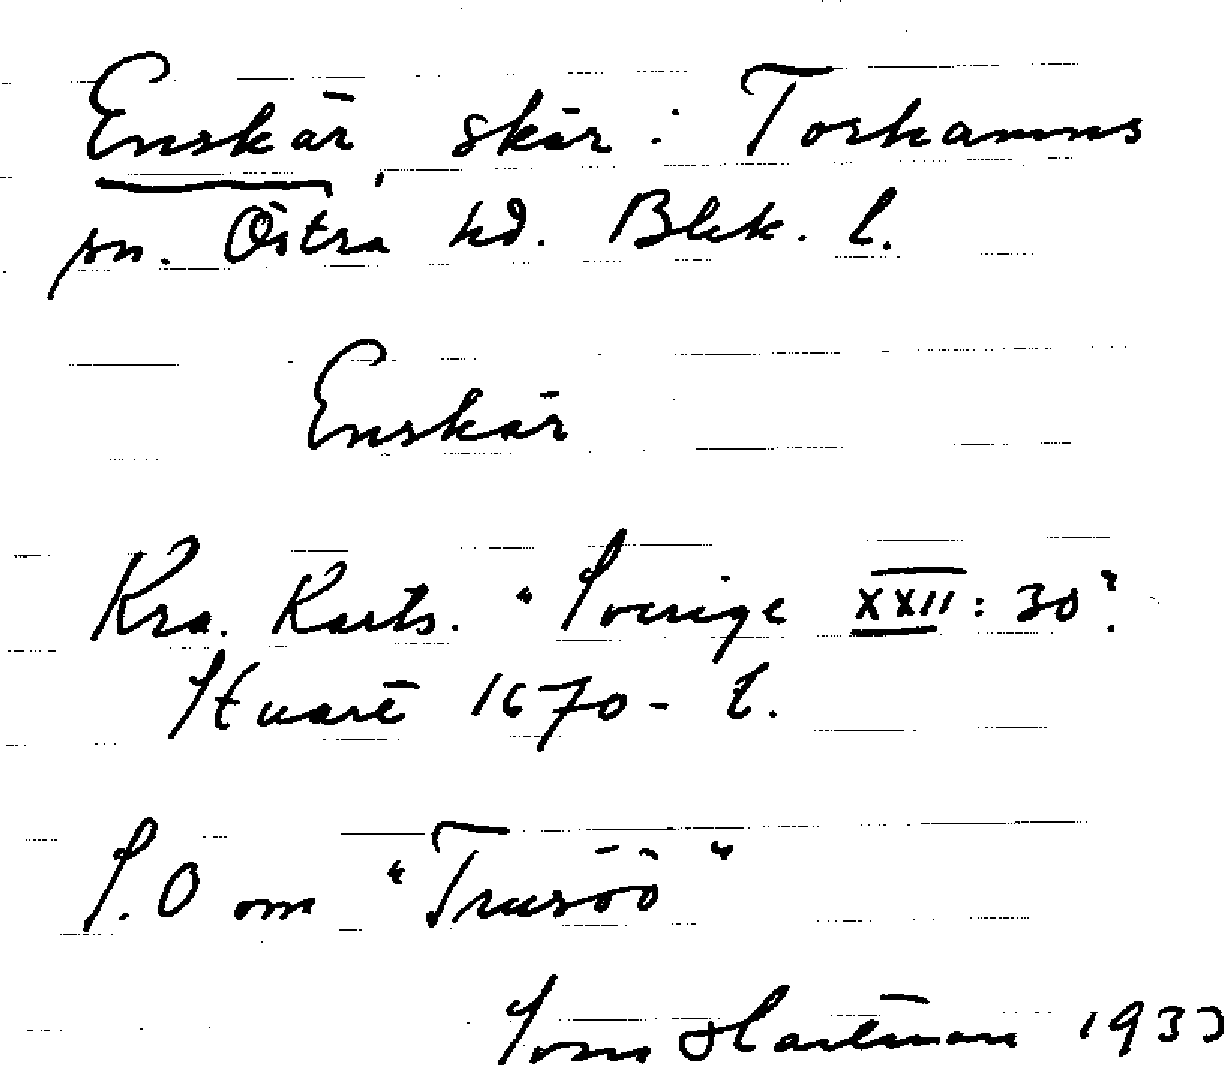 Enskär, skär i Torhamns
sn. Östra hd. Blek. l.
Enskär
Kra. Karts. "Sverige XXII: 30".
Stuart 1670-t.
S.O om "Trusöö"
Sven Hartman 193